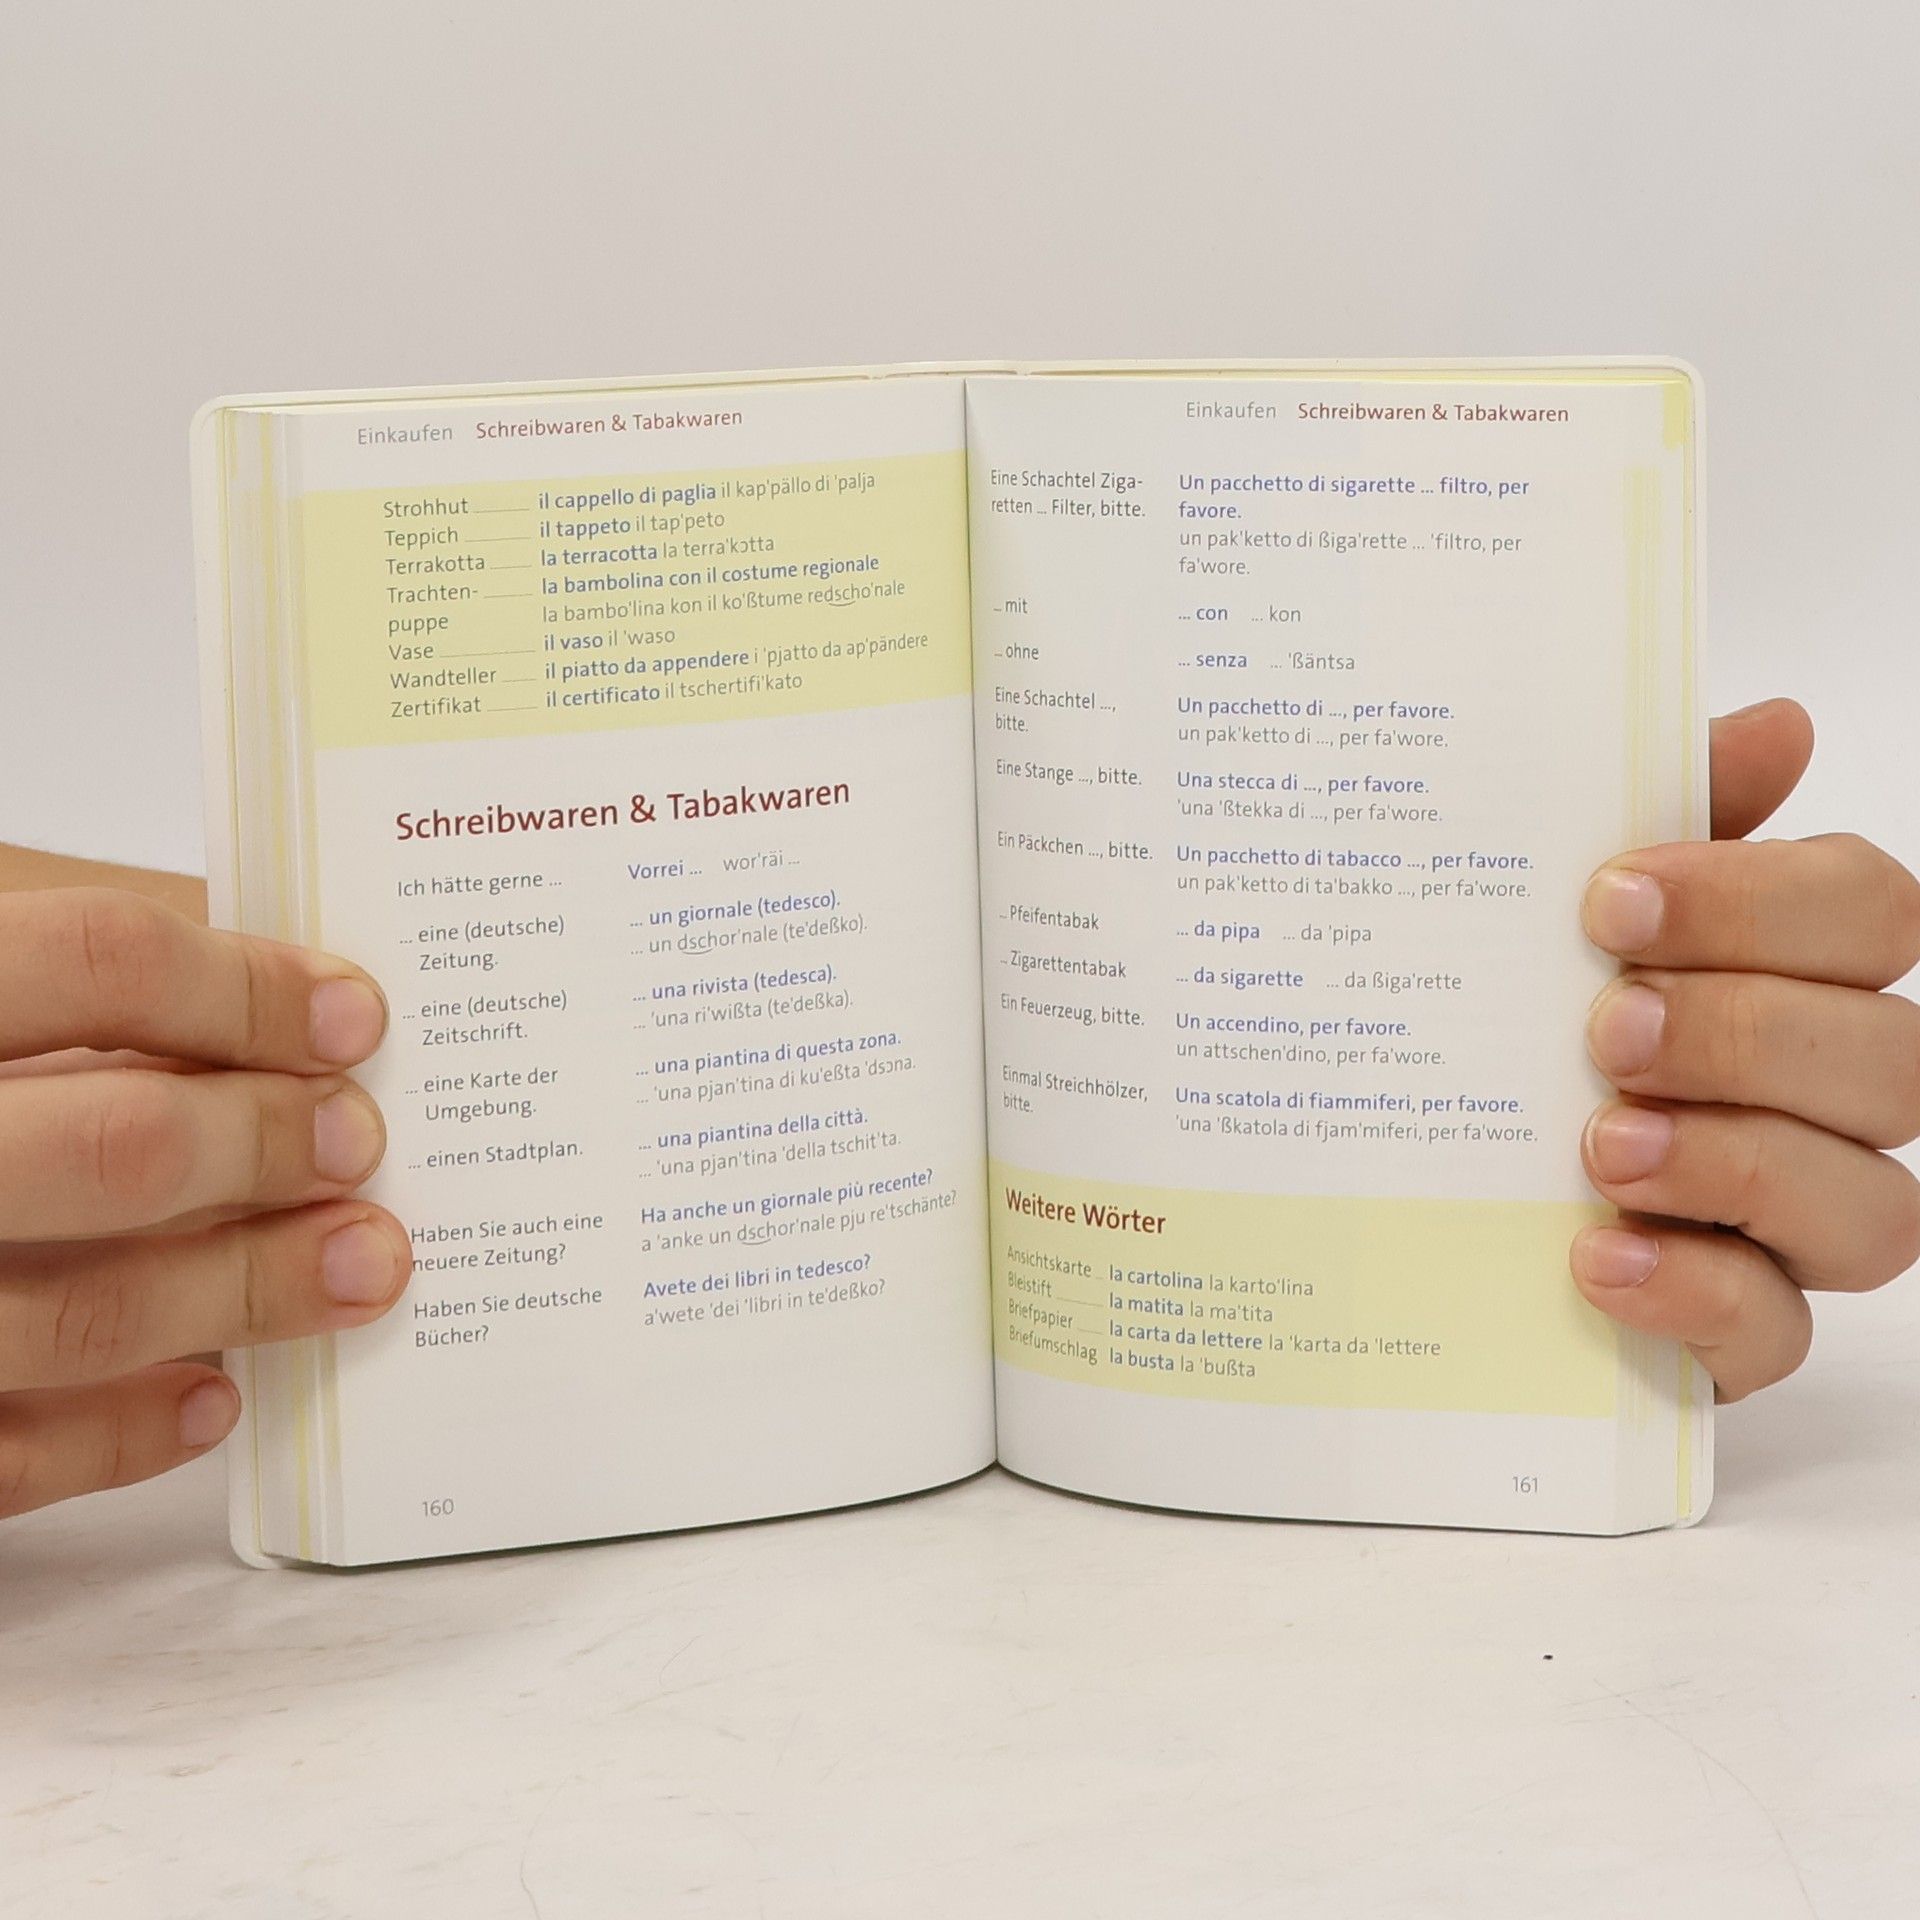 Einkaufen Schreibwaren & Tabakwaren
Strohhut il cappello di paglia il kap'pällo di 'palja
Teppich il tappeto il tap'peto
Terrakotta la terracotta la terra'kɔtta
Trachten- la bambolina con il costume regionale
puppe la bambo'lina kon il ko'ßtume redscho'nale
Vase il vaso il 'waso
Wandteller il piatto da appendere i 'pjatto da ap'pändere
Zertifikat il certificato il tschertifi'kato
Schreibwaren & Tabakwaren
Ich hätte gerne ... Vorrei ... wor'räi ...
... eine (deutsche) ... un giornale (tedesco).
Zeitung. ... un dschor'nale (te'deßko).
... eine (deutsche) ... una rivista (tedesca).
Zeitschrift. ... 'una ri'wißta (te'deßka).
... eine Karte der ... una piantina di questa zona.
Umgebung. ... 'una pjan'tina di ku'eßta 'dsɔna.
... einen Stadtplan. ... una piantina della città.
... 'una pjan'tina 'della tschit'ta.
Haben Sie auch eine Ha anche un giornale più recente?
neuere Zeitung? a 'anke un dschor'nale pju re'tschänte?
Haben Sie deutsche Avete dei libri in tedesco?
Bücher? a'wete 'dei 'libri in te'deßko?
160
Einkaufen Schreibwaren & Tabakwaren
Eine Schachtel Ziga- Un pacchetto di sigarette ... filtro, per
retten ... Filter, bitte. favore.
un pak'ketto di ßiga'rette ... 'filtro, per
fa'wore.
... mit ... con ... kon
... ohne ... senza ... 'ßäntsa
Eine Schachtel ..., Un pacchetto di ..., per favore.
bitte. un pak'ketto di ..., per fa'wore.
Eine Stange ..., bitte. Una stecca di ..., per favore.
'una 'ßtekka di ..., per fa'wore.
Ein Päckchen ..., bitte. Un pacchetto di tabacco ..., per favore.
un pak'ketto di ta'bakko ..., per fa'wore.
... Pfeifentabak ... da pipa ... da 'pipa
... Zigarettentabak ... da sigarette ... da ßiga'rette
Ein Feuerzeug, bitte. Un accendino, per favore.
un attschen'dino, per fa'wore.
Einmal Streichhölzer, Una scatola di fiammiferi, per favore.
bitte. 'una 'ßkatola di fjam'miferi, per fa'wore.
Weitere Wörter
Ansichtskarte la cartolina la karto'lina
Bleistift la matita la ma'tita
Briefpapier la carta da lettere la 'karta da 'lettere
Briefumschlag la busta la 'bußta
161